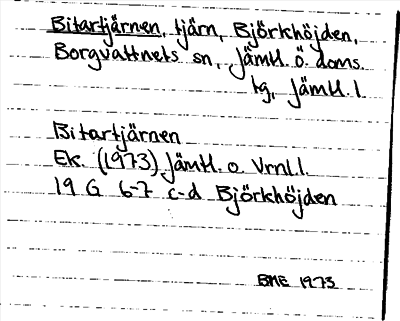 Bitartjärnen, tjärn, Björkhöjden,
Borgvattnets sn, Jämtl. ö. doms.
tg, Jämtl. l
Bitartjärnen
Ek. (1973) Jämtl. o. Vrnl l.
19 G 6-7 c-d Björkhöjden
BME 1973